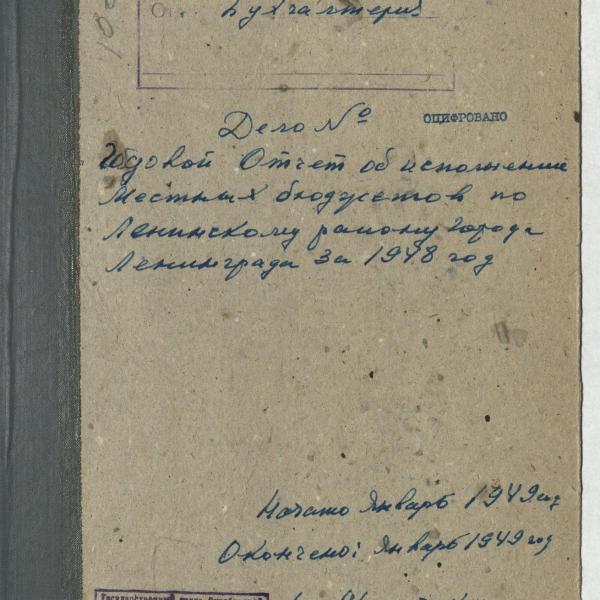 Бухгалтерия
Дело №
ОЦИФРОВАНО
Годовой Отчет об исполнении
Местных бюджетов по
Ленинскому району города
Ленинграда за 1948 год
Начато Январь 1949 год
Окончено: Январь 1949 год
Государственный